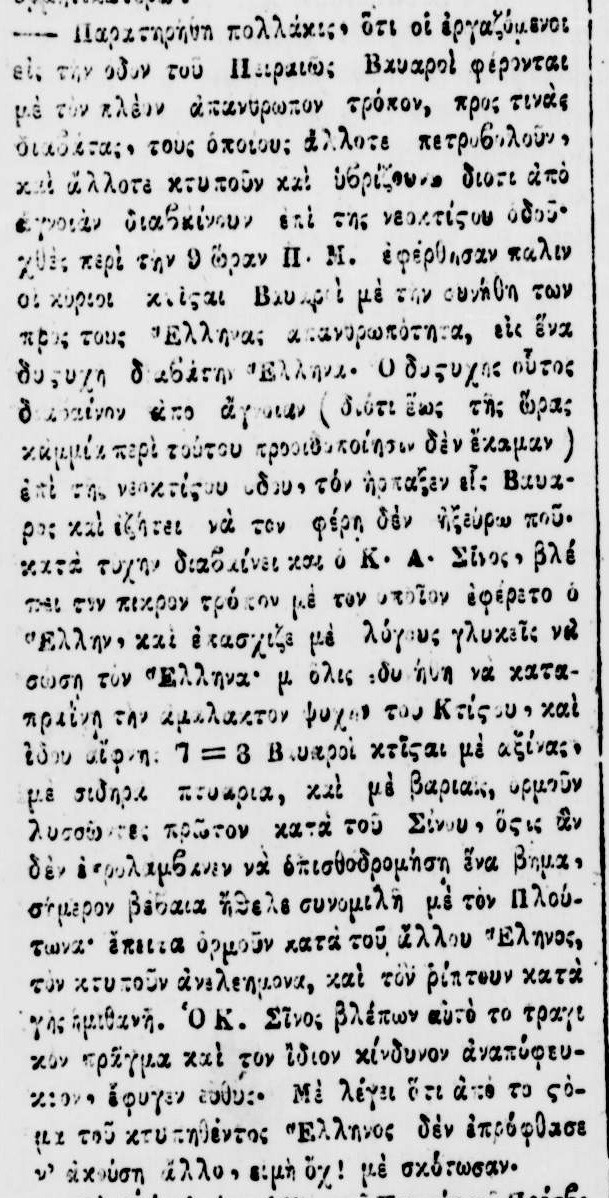 — Παρατηρήθη πολλάκις, ὅτι οἱ ἐργαζόμενοι
εἰς τὴν οδον τοῦ Πειραιῶς Βαυαροὶ φέρονται
μὲ τὸν πλέον ἀπανθρωπον τρόπον, προς τινὰς
διαβάτας, τους ὁποιους ἄλλοτε πετροβολοῦν,
καὶ ἄλλοτε κτυποῦν καὶ ὑβρίζουν, διοτι ἀπὸ
ἄγνοιάν διαβαίνουν ἐπὶ της νεοκτίςου ὁδοῦ·
χθὲς περὶ τὴν 9 ὥραν Π. Μ. ἐφέρθησαν παλιν
οἱ κύριοι κτίςαι Βαυαροὶ μὲ την συνήθη των
προς τους Ἕλληνας απανθρωπότητα, εἰς ἕνα
δυςυχη διαβάτην Ἕλληνα. Ὁ δυςυχης οὗτος
διαβαίνον ἀπο ἄγνοιαν ( διότι ἕως τῆς ὥρας
καμμίαν περὶ τούτου προειδοποίησιν δὲν ἔκαμαν )
ἐπὶ της νεοκτίςου οδου, τόν ἥρπαξεν εἷς Βαυα-
ρος καὶ ἐζήτει νὰ τον φέρη δέν ἠξεύρω ποῦ.
κατὰ τυχην διαβαίνει και ὁ Κ. Α. Σῖνος, βλέ
πει τον πικρον τρόπον μὲ τον ὁποῖον ἐφέρετο ὁ
Ἕλλην, καὶ ἐπασχιζε μὲ λόγους γλυκεῖς νὰ
σωση τὸν Ἕλληνα· μ όλις εδυ ήθη νὰ κατα-
πραΰνη την αμαλακτον ψυχην του Κτίςου, καὶ
ἰδου αἴφνης 7 = 8 Βαυαροὶ κτῖςαι μὲ αξίνας,
μὲ σιδηρα πτυαρια, καὶ μὲ βαριαις, ορμοῦν
λυσσῶντες πρῶτον κατὰ τοῦ Σίνου, ὅςις ἂν
δὲν ἐπρολαμβανεν νὰ ὀπισθοδρομήση ἕνα βημα,
σήμερον βέβαια ἤθελε συνομιλῆ μὲ τὸν Πλού-
τωνα· ἔπειτα ὁρμοῦν κατὰ τοῦ ἄλλου Ἕληνος,
τὸν κτυποῦν ἀνελεημονα, καὶ τὸν ῥίπτουν κατὰ
γης ἡμιθανῆ. Ὁ Κ. Σῖνος βλέπων αὐτὸ το τραγι
κον πρᾶγμα καὶ τον ἴδιον κίνδυνον ἀναπόφευ-
κτον, ἔφυγεν εὐθὺς. Μὲ λέγει ὅτι ἀπὸ το ςό-
μα τοῦ κτυπηθέντος Ἕλληνος δὲν ἐπρόφθασε
ν' ἀκούση ἄλλο, ειμὴ ὄχ! μὲ σκότωσαν.